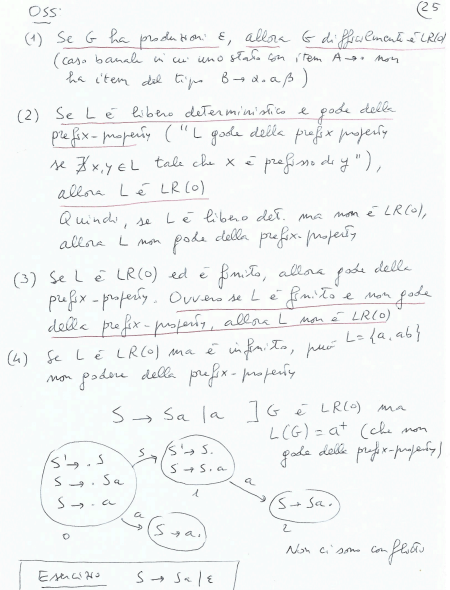 OSS. (25
(1) Se G ha produzioni ε, allora G difficilmente è LR(0)
(caso banale in cui uno stato con item A → . non
ha item del tipo B → α.aβ)
(2) Se L è libero deterministico e gode della
prefix-property ("L gode della prefix property
se ∄ x,y ∈ L tale che x è prefisso di y"),
allora L è LR(0)
Quindi, se L è libero det. ma non è LR(0),
allora L non gode della prefix-property
(3) Se L è LR(0) ed è finito, allora gode della
prefix-property. Ovvero se L è finito e non gode
della prefix-property, allora L non è LR(0)
(4) Se L è LR(0) ma è infinito, può L={a,ab}
non godere della prefix-property
S → Sa | a ] G è LR(0) ma
L(G) = a⁺ (che non
gode della prefix-property)
S' → . S
S → . Sa
S → . a
0
S
S' → S.
S → S.a
1
a
S → Sa.
2
a
S → a.
Non ci sono conflitti
Esercizio S → Sa | ε